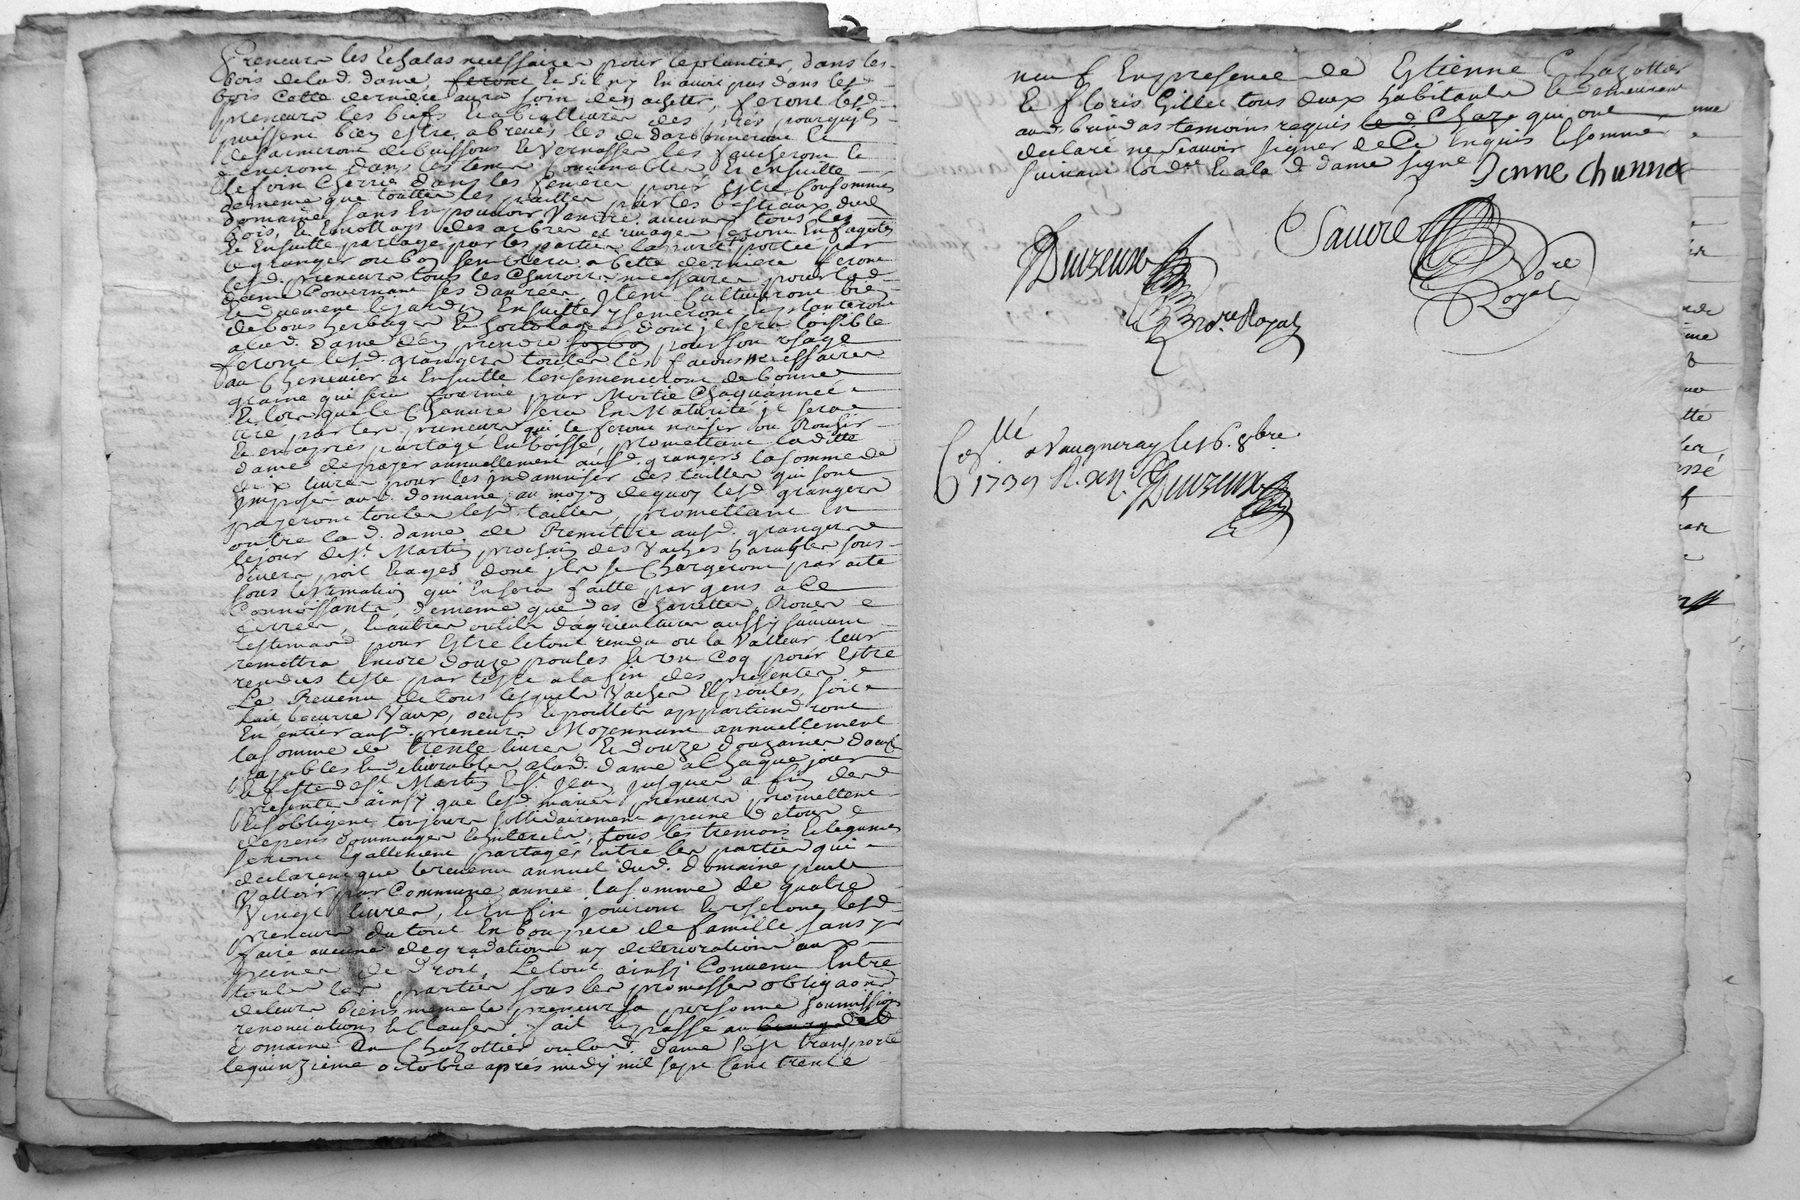 Preneurs les Echalas necessaires pour leplantier, dans les
bois delad. dame, feront Et sil ny En avoit pas dans lesd
bois Cette derniere aura soin den achetter, feront lesd
preneurs les biefs Rabatteures des prés pourquils
puissent bien estre abreuvés les
despineront debuissons Et Vernasses les faucheront Et
feneront dans les tems Convenables Et Ensuitte
Le foin Cherrié dans les feneres pour Estre Consommés
dememe que touttes les pailles par les bestiaux dud
domaine, sans En pouvoir Vendre aucune tous les
bois, Et Emottays des arbres et rivages seront Enfagotés
Et Ensuitte partagé par les parties la part portée par
le granger ou bon semblera a Cette derniere feront
lesd. preneurs tous les Charrois necessaires pour lad
dame Concernant ses danrées Item Cultiveront bien
Et duement lejardin Ensuitte y semeront Et planteront
de bons herbages Et hortolages dont il sera loisible
alad. dame den prendre pour son usage
feront lesd. grangers touttes les facons necessaires
au Chenevier Et Ensuitte lensemenceront de bonne
graine qui sera fournie par Moitié Chaquannée
Et lors que le Chanvre sera En Maturité il sera
tiré par les preneurs qui le feront naiser ou Rouhir
Et enapres partagé En bosse, promettant laditte
dame de payer annuellement ausd. grangers lasomme de
dix livres pour les indamniser des tailles qui sont
Imposées aud. domaine, au moyen dequoy lesd grangers
payeront touttes lesd. tailles, promettant En
outre la d. dame de Remettre ausd. grangers
lejour de st. Martin prochain des Vaches harables sous
divers poil Et ages dont ils se Chargeront par acte
sous lestimation qui Ensera faitte par gens a Ce
Connoissants, dememe que des Charrettes, Roues
Et autres outils dagriculture aussy suivant
lestimaon pour Estre letout rendu ou la Valleur leur
remettra Encore douze poules Et un Coq pour Estre
rendus teste par teste a la fin des presentes
Le Revenu de tous lesquels Vaches Et poules, soit
Lait beurre Vaux, oeufs Et poullets appartiendront
En entier ausd. preneurs Moyennant annuellement
lasomme de trente livres Et douze douzaines doeufs
payables Et delivrables alad. dame a Chaque jour
Et feste de st. Martin Et st. Jean jusques a fin des
presentes ainsy que lesd. mariés preneurs promettent
Et sobligent toujours sollidairement apeine de tous
depens dommages Et interets, tous les tremois Et legumes
seront Egallement partagés Entre les parties qui
declarent que lerevenu annuel dud. domaine peut
Valloir par Commune année lasomme de quatre
Vingt livres, Et En fin jouiront Et useront lesd
preneurs du tout En bon pere de famille sans y
faire aucune degradations ny deteriorations aux
peines de Droit, Le tout ainsy Convenu Entre
touttes les parties sous les promesses obligaons
deleurs biens meme le preneur sa personne soumissions
renonciations Et Clauses, fait Et passé au bourg dud
domaine Du Chazottier ou lad. dame sest transporté
lequinzieme octobre après midy mil sept Cent trente
neuf En presence de Estienne Chazottier
Et floris Gillet tous deux habitants Et demeurant
aud. brindas temoins requis led Chaz qui ont
declaré ne scavoir signer de Ce Enquis Et sommés
suivant lord.re Et a la d. dame signé Jenne chunnet
Sauore
Duizeux
Nore
Royal
No.re Royal
Con.llé a Vaugneray le 16. 8bre.
1739 R. Duizeux